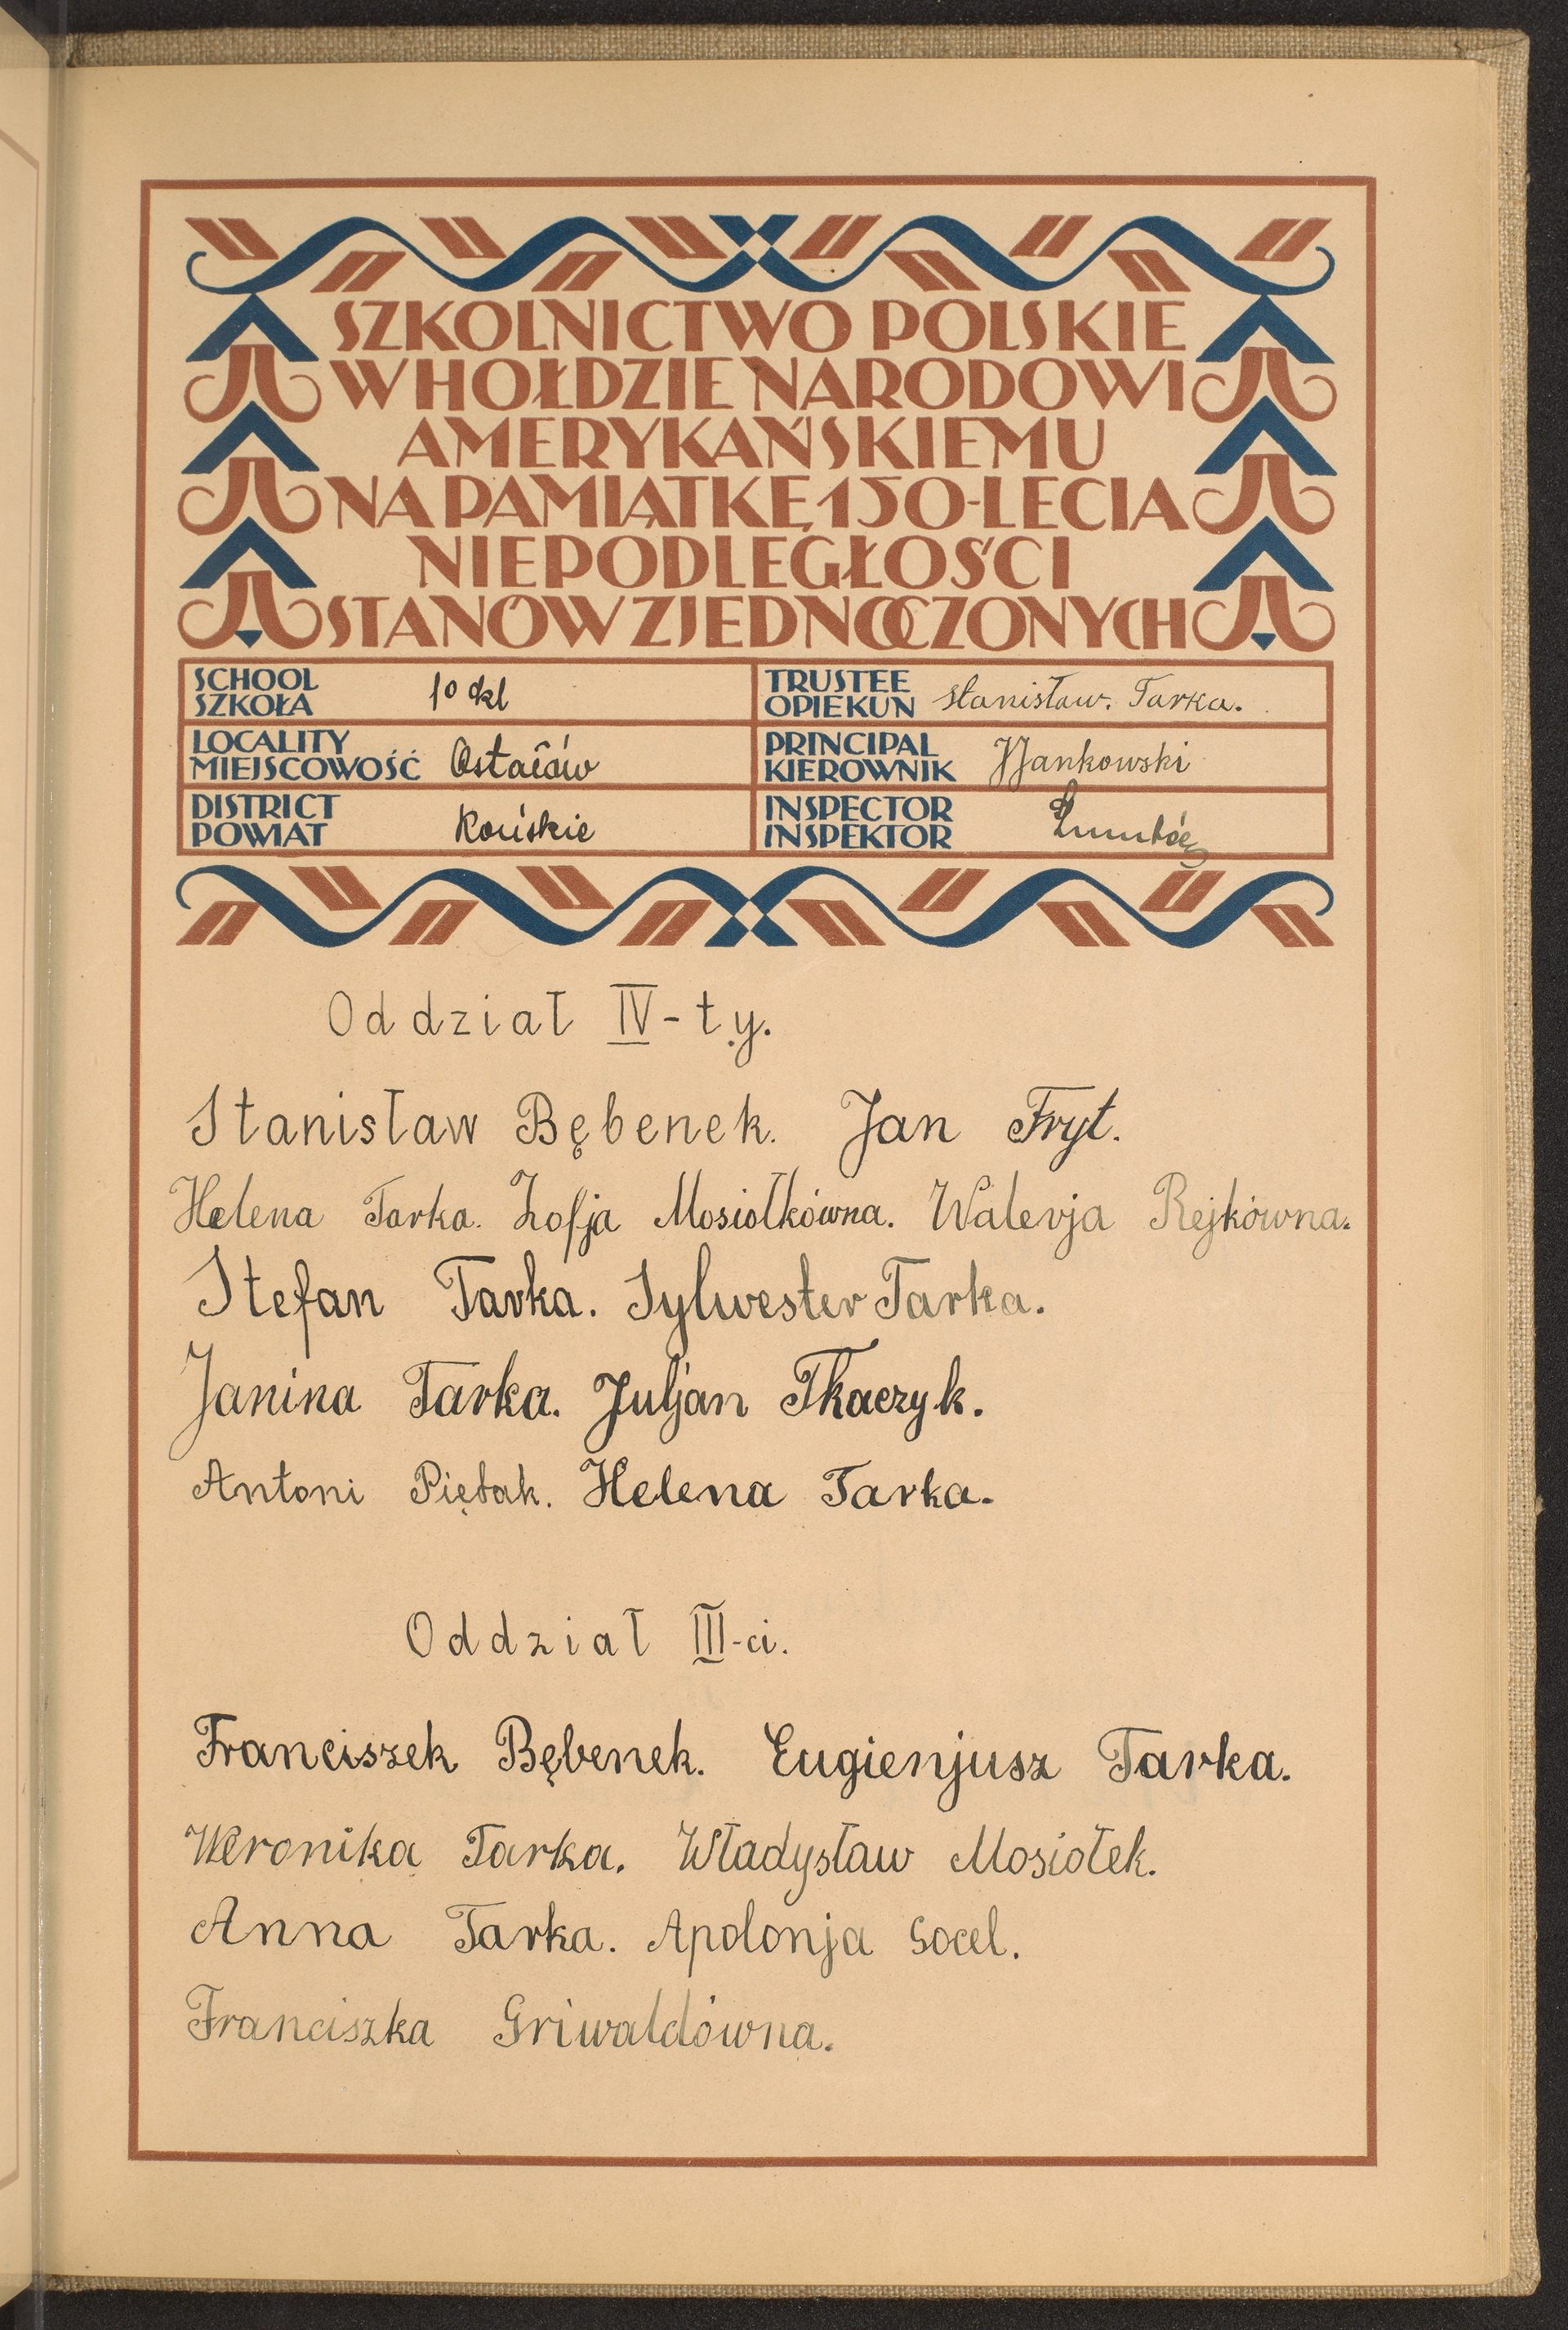 SZKOLNICTWO POLSKIE
W HOŁDZIE NARODOWI
AMERYKAŃSKIEMU
NA PAMIĄTKĘ 150-LECIA
NIEPODLEGŁOŚCI
STANÓW ZJEDNOCZONYCH
SCHOOL
SZKOŁA 1º kl
TRUSTEE
OPIEKUN Stanisław. Tarka.
LOCALITY
MIEJSCOWOŚĆ Ostałów
PRINCIPAL
KIEROWNIK JJankowski
DISTRICT
POWIAT Końskie
INSPECTOR
INSPEKTOR
Oddział IV-ty.
Stanisław Bębenek. Jan Fryt.
Helena Tarka. Zofja Mosiołkówna. Walerja Rejkówna.
Stefan Tarka. Sylwester Tarka.
Janina Tarka. Juljan Tkaczyk.
Antoni Piętak. Helena Tarka.
Oddział III-ci.
Franciszek Bębenek. Eugienjusz Tarka.
Weronika Tarka. Władysław Mosiołek.
Anna Tarka. Apolonja Socel.
Franciszka Griwaldówna.